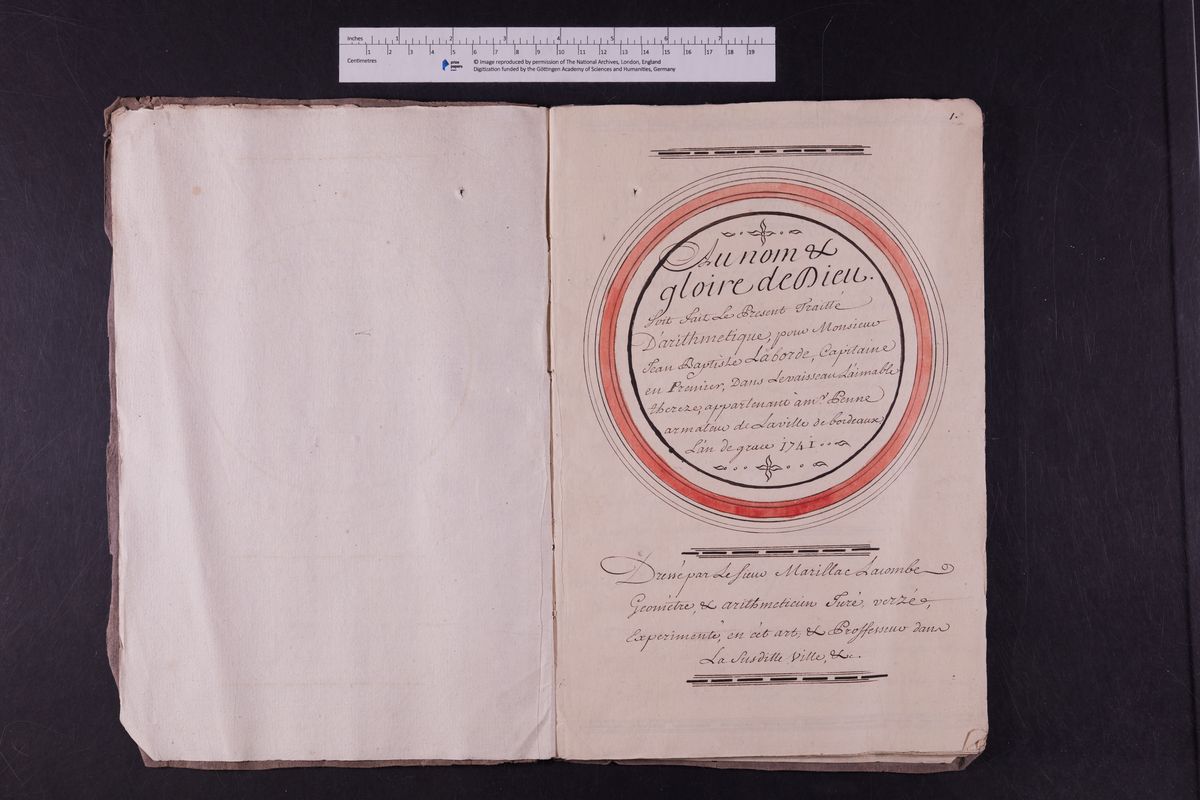 Inches 1 2 3 4 5 6 7
1 2 3 4 5 6 7 8 9 10 11 12 13 14 15 16 17 18 19
Centimetres
prize papers
© Image reproduced by permission of The National Archives, London, England
Digitization funded by the Göttingen Academy of Sciences and Humanities, Germany
1.
Au nom &
gloire de Dieu.
Soit fait Le Present Traitté
D'arithmetique, pour Monsieur
Jean Baptiste Laborde, Capitaine
en Premier, Dans Levaisseau L'aimable
thereze, appartenant à mr. Penne
armateur de Laville de bordeaux
L'án de grace 1741
Dressé par Le sieur Marillac Lacombe
Geométre, & arithmeticien Juré, verzé,
Experimenté, en cét art, & Proffesseur dans
La Susditte Ville, &c.